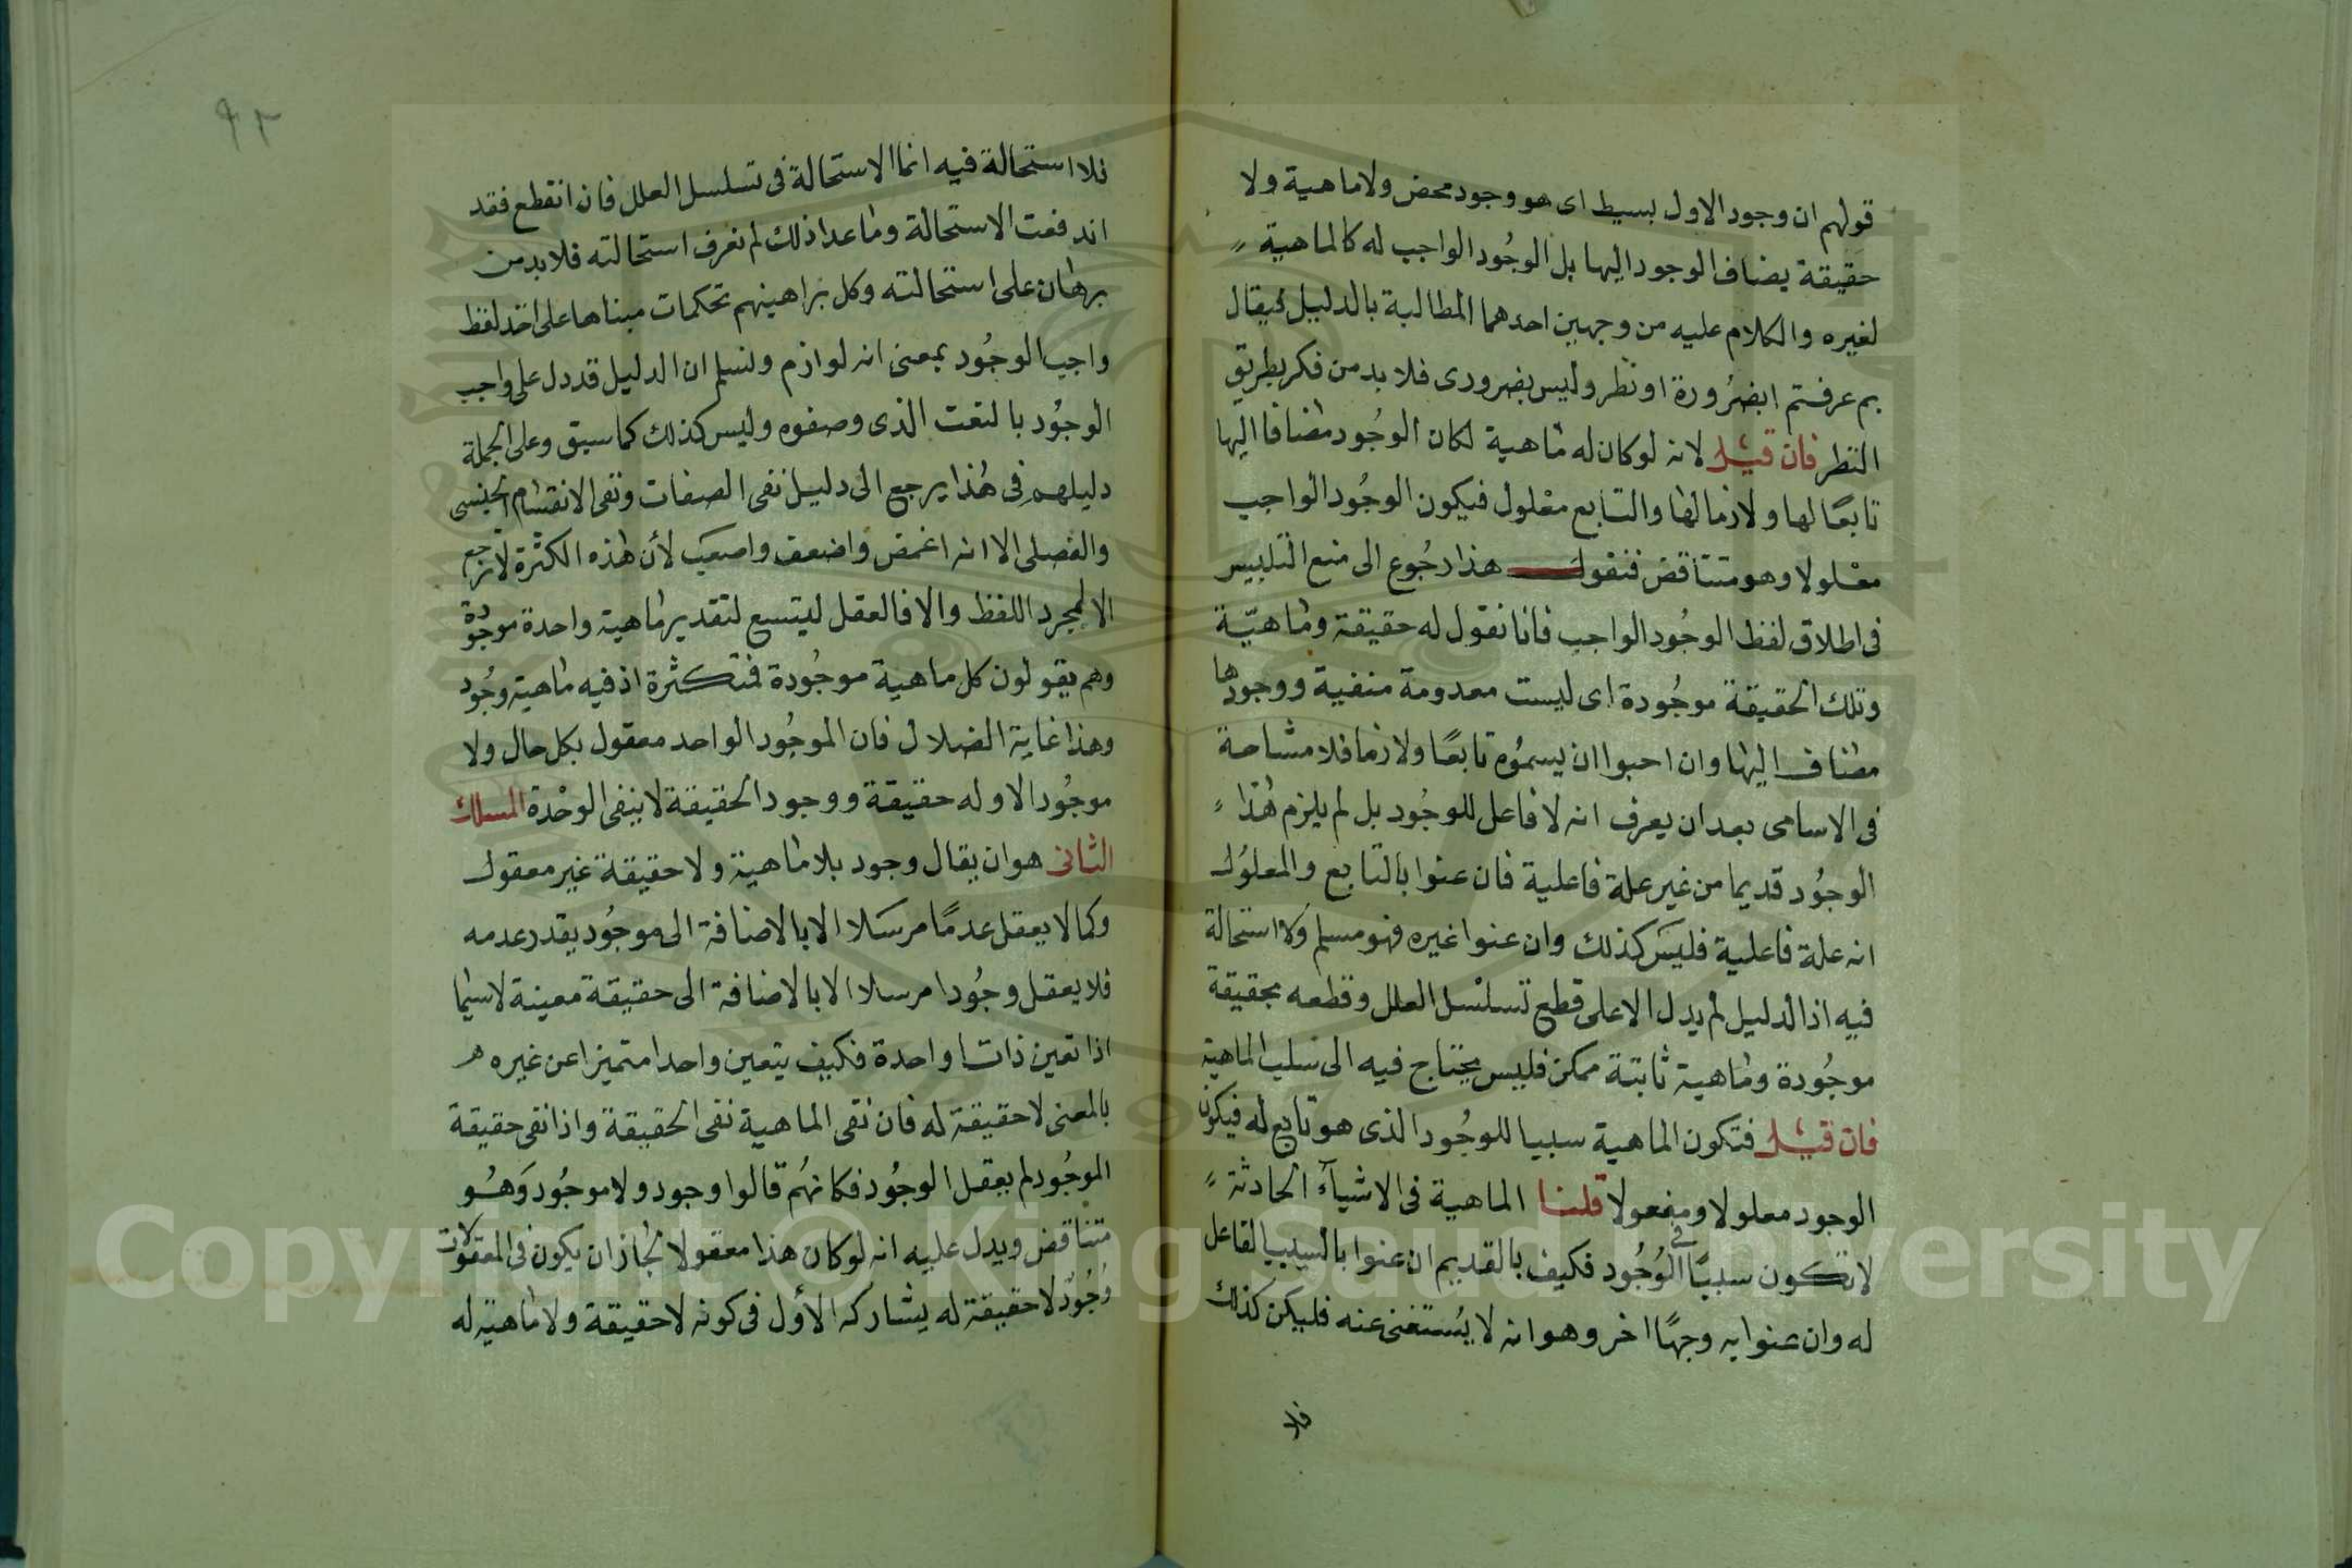 قولهم ان وجود الاول بسيط اى هو وجود محض ولا ماهية ولا
حقيقة يضاف الوجود اليها بل الوجود الواجب له كالماهية
لغيره والكلام عليه من وجهين احدهما المطالبة بالدليل فيقال
بم عرفتم ابضرورة او نظر وليس بضرورى فلا بد من فكر بطريق
النظر فان قيل لانه لو كان له ماهية لكان الوجود مضافا اليها
تابعا لها ولازما لها والتابع معلول فيكون الوجود الواجب
معلولا وهو متناقض فنقول هذا رجوع الى منبع التلبيس
فى اطلاق لفظ الوجود الواجب فانا نقول له حقيقة وماهية
وتلك الحقيقة موجودة اى ليست معدومة منفية ووجودها
مضاف اليها وان احبوا ان يسموه تابعا ولازما فلا مشاحة
فى الاسامى بعد ان يعرف انه لا فاعل للوجود بل لم يلزم هذا
الوجود قديما من غير علة فاعلية فان عنوا بالتابع والمعلول
انه علة فاعلية فليس كذلك وان عنوا غيره فهو مسلم ولا استحالة
فيه اذ الدليل لم يدل الا على قطع تسلسل العلل وقطعه بحقيقة
موجودة وماهية ثابتة ممكن فليس يحتاج فيه الى سلب الماهية
فان قيل فتكون الماهية سببا للوجود الذى هو تابع له فيكون
الوجود معلولا ومفعولا قلنا الماهية فى الاشيآء الحادثة
لا تكون سببا فى الوجود فكيف بالقديم ان عنوا بالسبب الفاعل
له وان عنوا به وجها اخر وهو انه لا يستغنى عنه فليكن كذلك
فلا
٩٢
فلا استحالة فيه انما الاستحالة فى تسلسل العلل فان انقطع فقد
اندفعت الاستحالة وما عدا ذلك لم نعرف استحالته فلا بد من
برهان على استحالته وكل براهينهم تحكمات مبناها على اخذ لفظ
واجب الوجود بمعنى انه لوازم ولنسلم ان الدليل قد دل على واجب
الوجود بالنعت الذى وصفوه وليس كذلك كما سبق وعلى الجملة
دليلهم فى هذا يرجع الى دليل نفى الصفات ونفى الانقسام الجنسى
والفصلى الا انه اغمض واضعف واصعب لأن هذه الكثرة لا ترجع
الا لمجرد اللفظ والا فالعقل ليتسع لتقدير ماهية واحدة موجودة
وهم يقولون كل ماهية موجودة فمتكثرة اذ فيه ماهية وجود
وهذا غاية الضلال فان الموجود الواحد معقول بكل حال ولا
موجود الا وله حقيقة ووجود الحقيقة لا ينفى الوحدة المسلك
الثانى هو ان يقال وجود بلا ماهية ولا حقيقة غير معقول
وكما لا يعقل عدما مرسلا الا بالاضافة الى موجود يقدر عدمه
فلا يعقل وجودا مرسلا الا بالاضافة الى حقيقة معينة لا سيما
اذا تعين ذاتا واحدة فكيف يتعين واحدا متميزا عن غيره
بالمعنى لا حقيقة له فان نفى الماهية نفى الحقيقة واذا نفى حقيقة
الموجود لم يعقل الوجود فكانهم قالوا وجود ولا موجود وهو
متناقض ويدل عليه انه لو كان هذا معقولا لجاز ان يكون فى المعقولات
وجود لا حقيقة له يشاركه الأول فى كونه لا حقيقة ولا ماهية له
Copyright © King Saud University